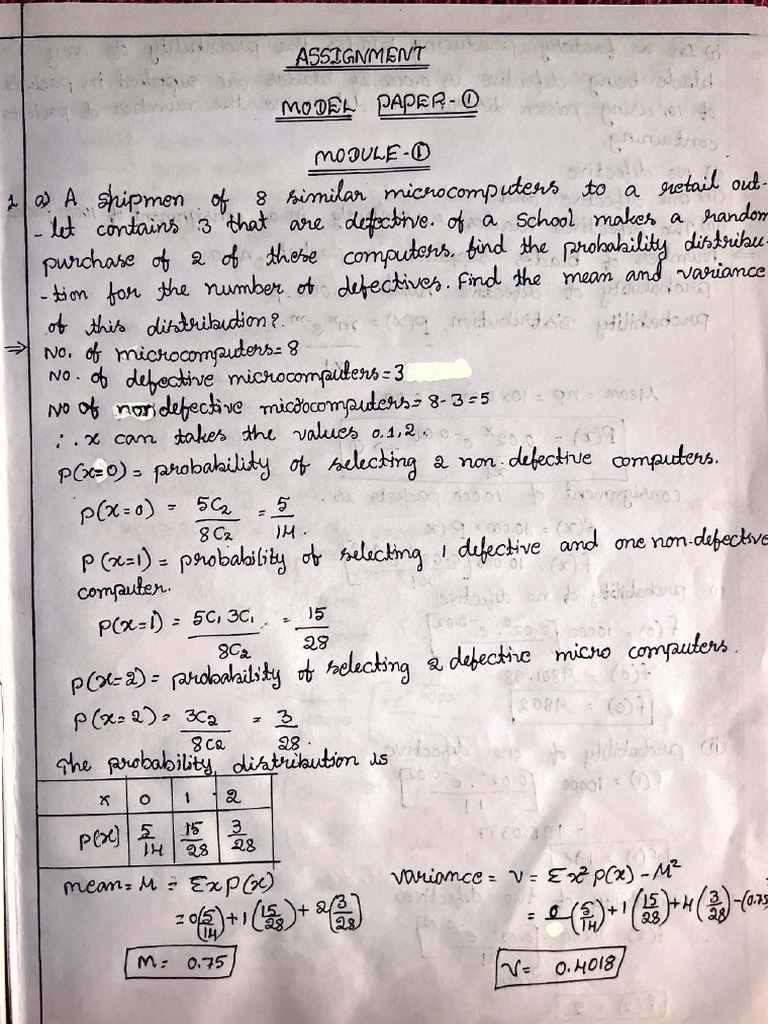 ASSIGNMENT
MODEL PAPER-①
MODULE-①
1 a) A shipmen of 8 similar microcomputers to a retail out-
-let contains 3 that are defective. of a School makes a random
purchase of 2 of these computers. find the probability distribu-
-tion for the number of defectives. Find the mean and variance
of this distribution?.
⇒ No. of microcomputers= 8
No. of defective microcomputers = 3
No of non defective microcomputers = 8-3=5
∴ x can takes the values 0,1,2.
p(x=0) = probability of selecting 2 non-defective computers.
p(x=0) = 5C2/8C2 = 5/14.
p(x=1) = probability of selecting 1 defective and one non-defective
computer.
p(x=1) = 5C1 3C1/8C2 = 15/28
p(x=2) = probability of selecting 2 defective micro computers.
p(x=2) = 3C2/8C2 = 3/28.
The probability distribution is
x 0 1 2
p(x) 5/14 15/28 3/28
mean = M = Σxp(x)
= 0(5/14)+1(15/28)+2(3/28)
M= 0.75
variance = V = Σx² p(x) - M²
= 0(5/14)+1(15/28)+4(3/28)-(0.75
V= 0.4018